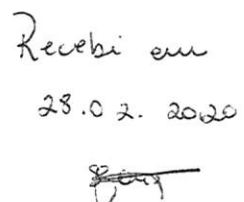 Recebi em
28.02.2020